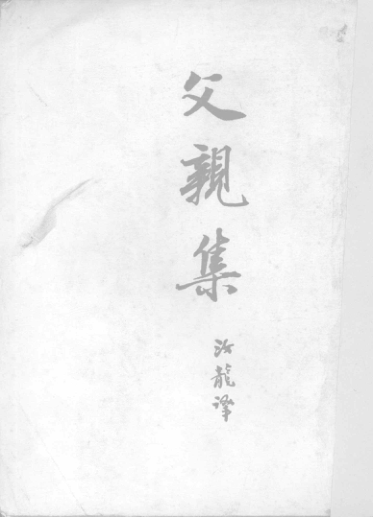 父親集
汝龍译